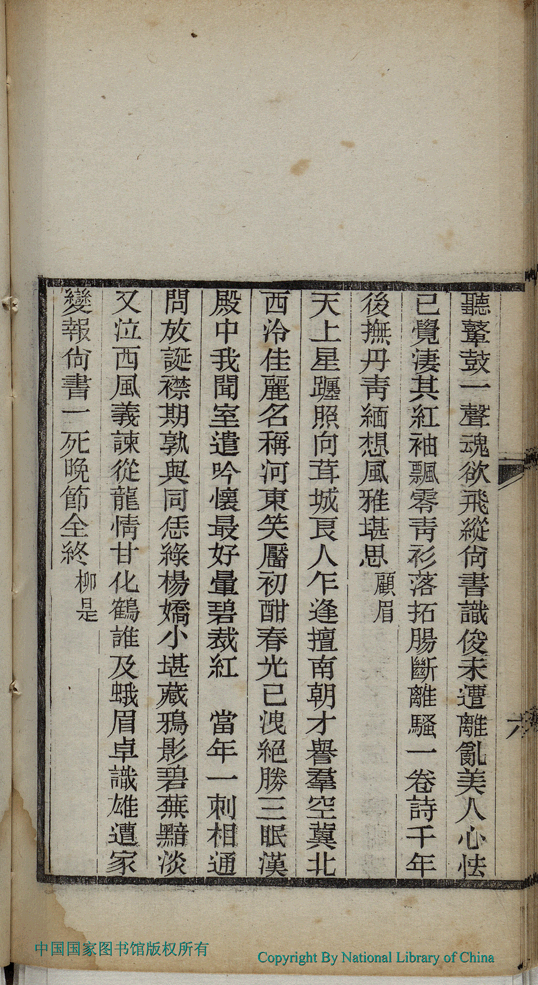 聽鼙鼓一聲魂欲飛縱尙書識俊未遭離亂美人心怯
已覺淒其紅袖飄零靑衫落拓腸斷離騷一卷詩千年
後撫丹靑緬想風雅堪思 顧眉
天上星躔照向茸城良人乍逢擅南朝才譽羣空冀北
西泠佳麗名稱河東笑靨初酣春光已洩絕勝三眠漢
殿中我聞室遣吟懷最好暈碧裁紅　當年一刺相通
問放誕襟期孰與同恁綠楊嬌小堪藏鴉影碧蕪黯淡
又泣西風義諫從龍情甘化鶴誰及蛾眉卓識雄遭家
變報尙書一死晚節全終 柳是
六
中国国家图书馆版权所有
Copyright By National Library of China